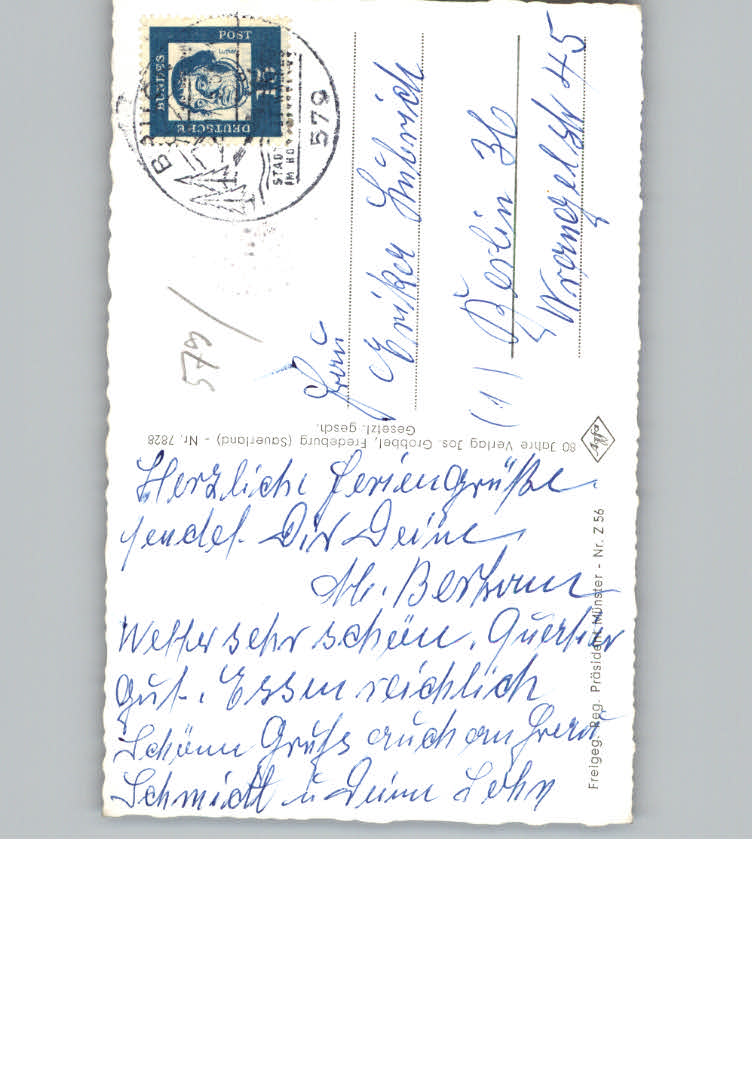 Herzliche Feriengrüße
sendet Dir Deine
M. Bertram
Wetter sehr schön, Quartier
gut. Essen reichlich
Schöne Grüße auch an Frau
Schmidt u Deine
Frau
Erika
(1) Berlin 36
Wrangelstr 45
579
DEUTSCHE BUNDESPOST
15
Luther
BRILON
STADT
IM HO
579
80 Jahre Verlag Jos. Grobbel, Fredeburg (Sauerland) - Nr. 7828
Gesetzl. gesch.
Freigeg. Reg. Präsident Münster - Nr. Z 56